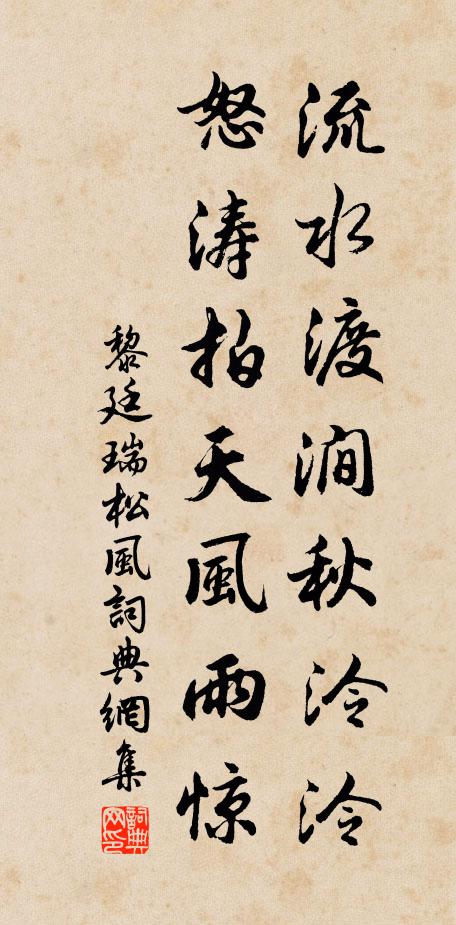 流水渡澗秋泠泠
怒涛拍天風雨惊
黎廷瑞松風詞典網集
詞典网印